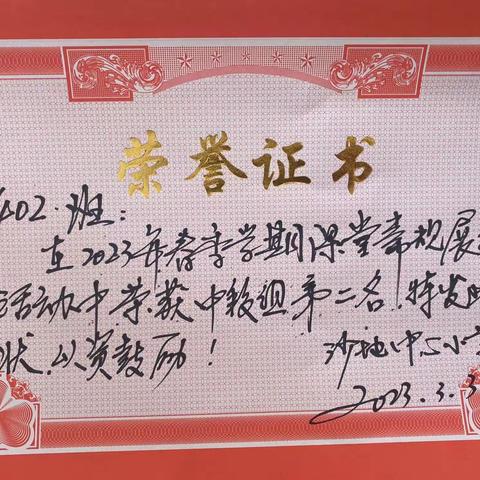 荣誉证书
402班:
在2023年春季学期课堂常规展
活动中荣获中段组第二名,特发此
状,以资鼓励!
沙地中心小学
2023.3.3